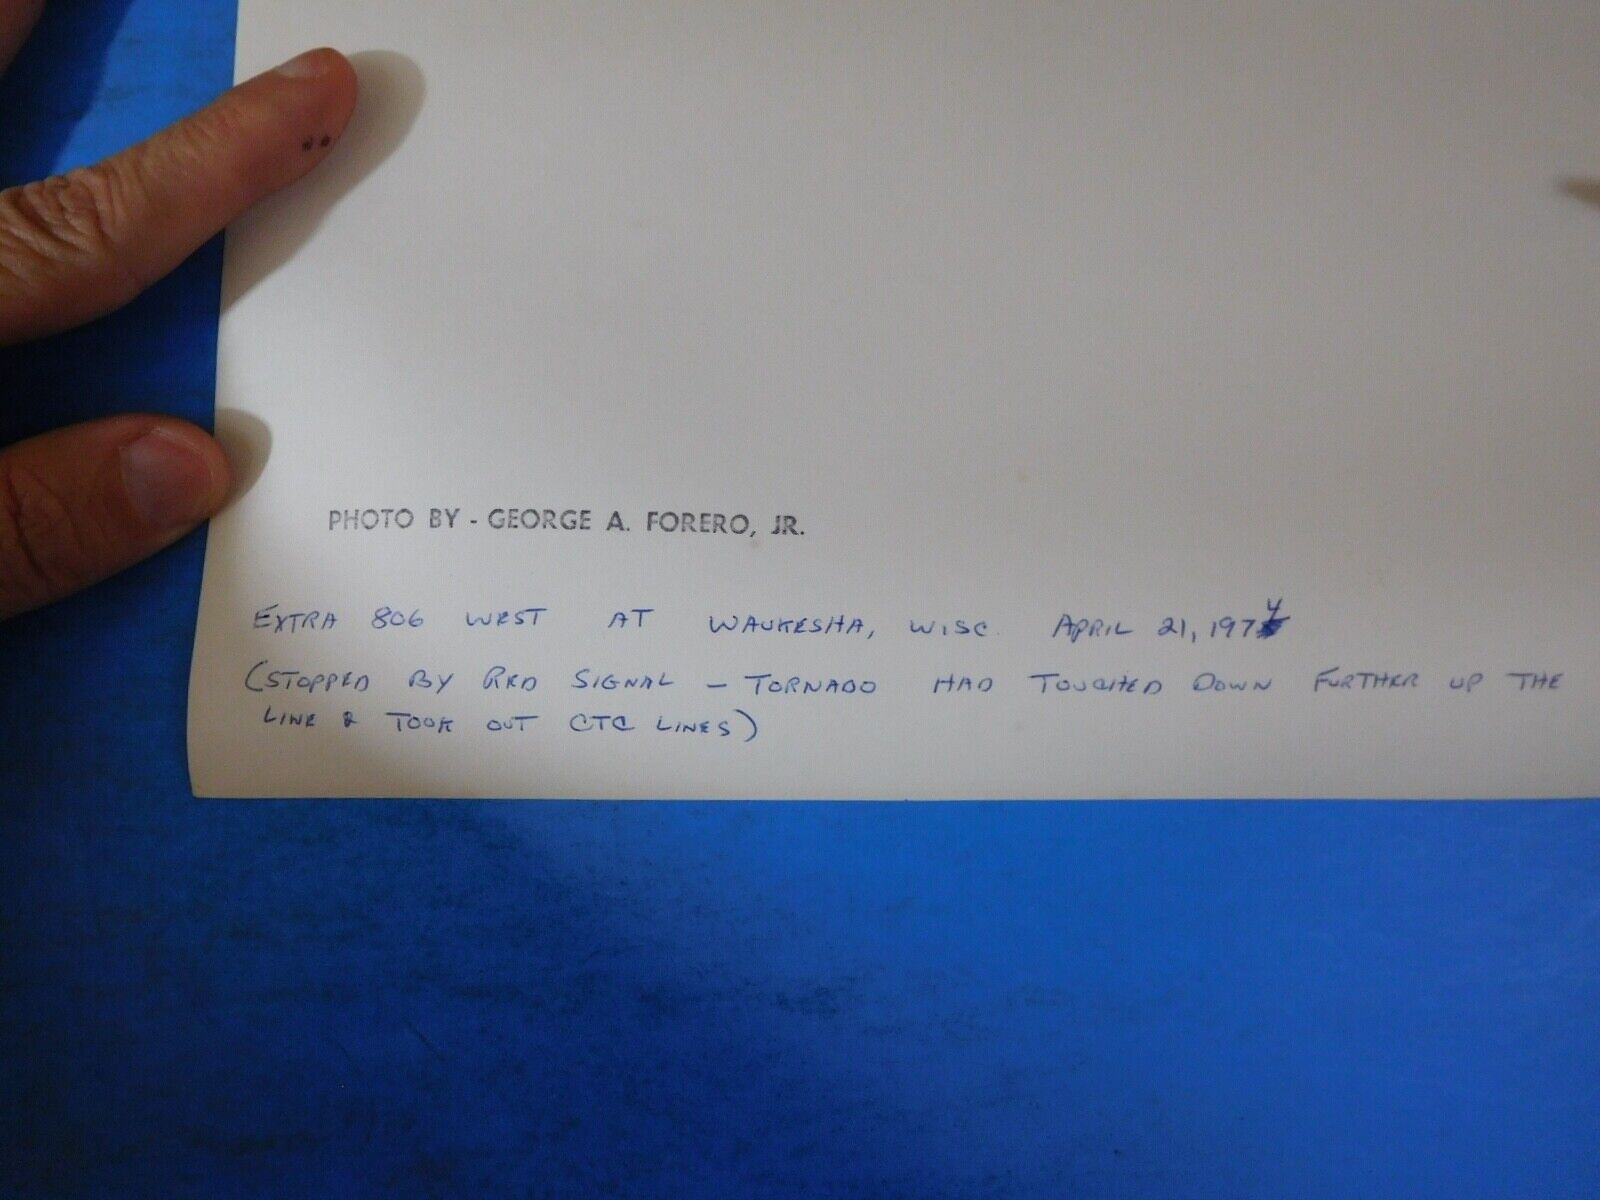 PHOTO BY - GEORGE A. FORERO, JR.
EXTRA 806 WEST AT WAUKESHA, WISC. APRIL 21, 1974
(STOPPED BY RED SIGNAL - TORNADO HAD TOUCHED DOWN FURTHER UP THE
LINE & TOOK OUT CTC LINES)